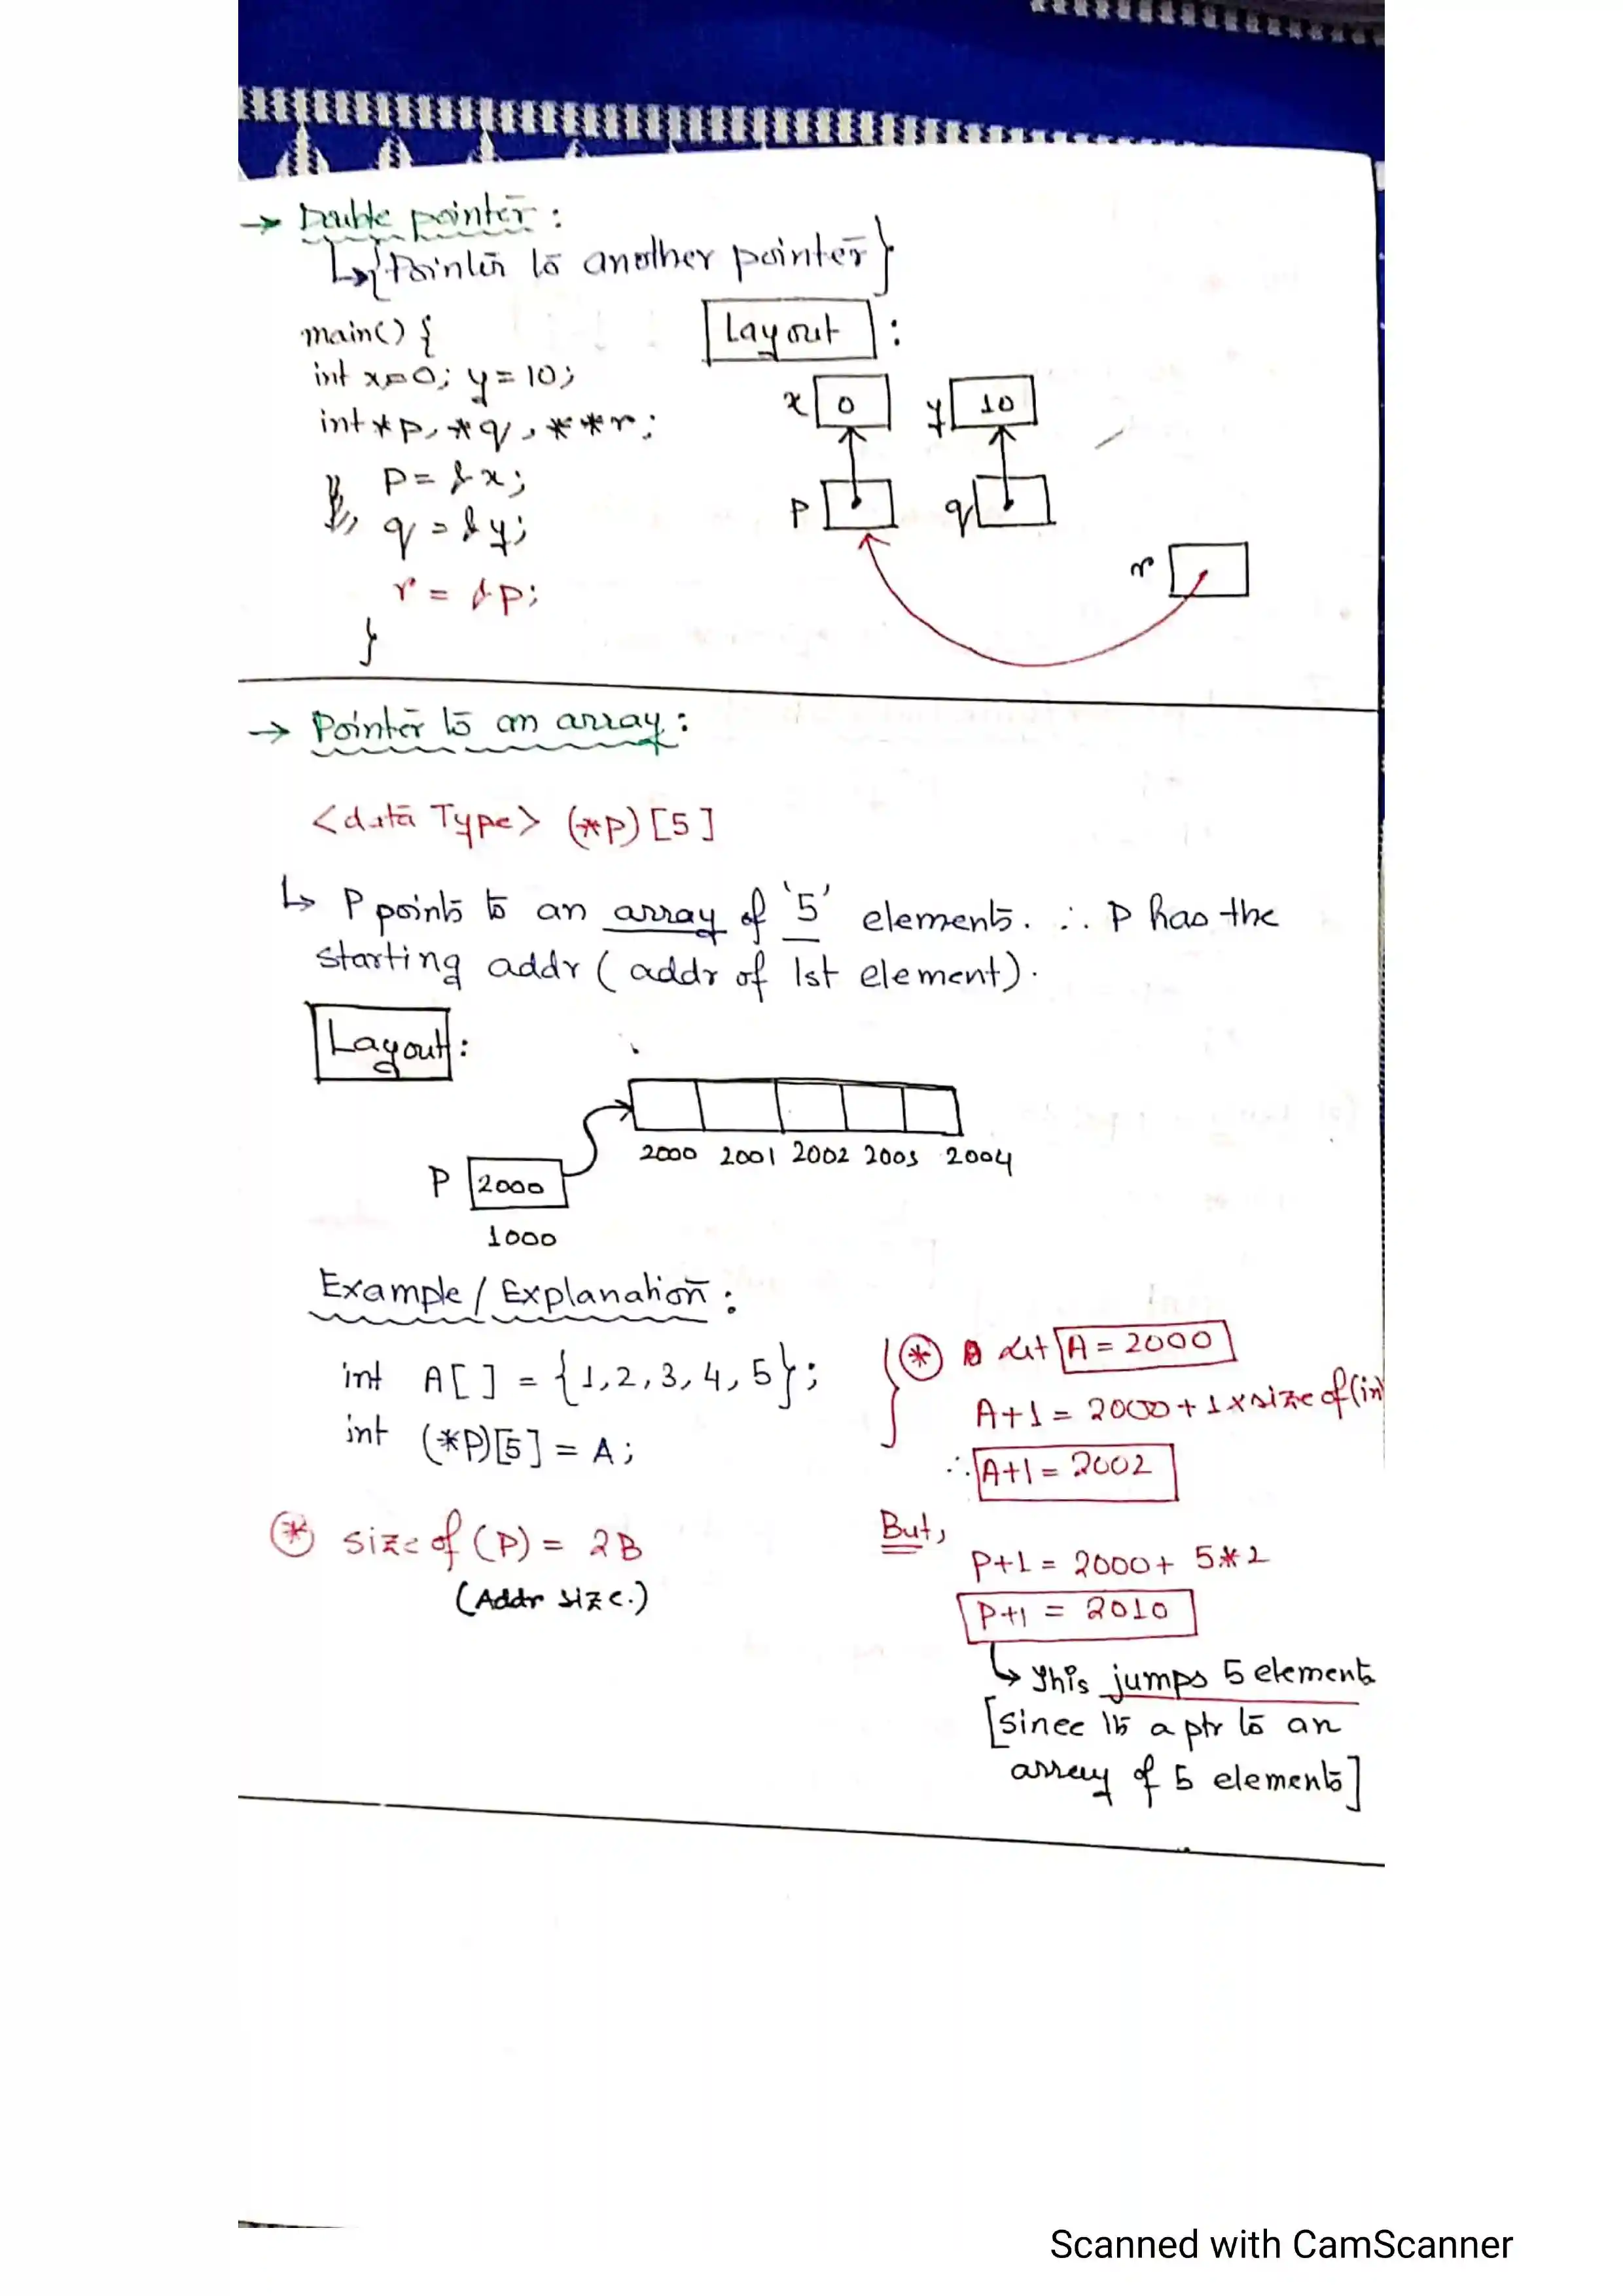 → Double pointer :
↳ {Pointer to another pointer}
main() {
int x=0; y=10;
int *p, *q, **r;
p = &x;
q = &y;
r = &p;
}
Layout :
x 0 y 10
p q
r
→ Pointer to an array :
<data Type> (*p)[5]
↳ P points to an array of '5' elements. ∴ P has the
starting addr (addr of 1st element).
Layout :
2000 2001 2002 2003 2004
P 2000
1000
Example / Explanation :
int A[ ] = {1,2,3,4,5};
int (*P)[5] = A;
* size of (P) = 2B
(Addr size.)
* Let A = 2000
A+1 = 2000 + 1 x size of (in
∴ A+1 = 2002
But,
P+1 = 2000 + 5*2
P+1 = 2010
↳ This jumps 5 elements
[since its a ptr to an
array of 5 elements]
Scanned with CamScanner